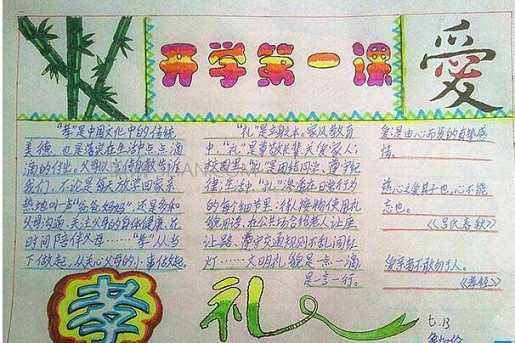 开学第一课
愛
"孝"是中国文化中的传统
美德,也是落实在生活中点点滴
滴的付出。父母以言传身教告诉
我们,不论是每天放学回家亲
热地叫声"爸爸妈妈",还是多和
父母沟通,关注父母的身体健康,花
时间陪伴父母……"孝"从当
下做起,从关心父母的小事做起。
"礼"是立身之本。家风教育
中,"礼"是尊敬长辈关爱家人;
校园里,"礼"是团结同学、遵守纪
律;生活中,"礼"渗透在日常行为
的每个细节里:待人接物使用礼
貌用语,在公共场合给老人让座
让路,遵守交通规则不乱闯红
灯……文明礼貌是一点一滴,
是一言一行。
爱,是由心而发的真挚感
情。
慈心之爱其子也,心不能
忘也。
《吕氏春秋》
爱亲者不敢恶于人。
《孝经》
孝
礼
七.13